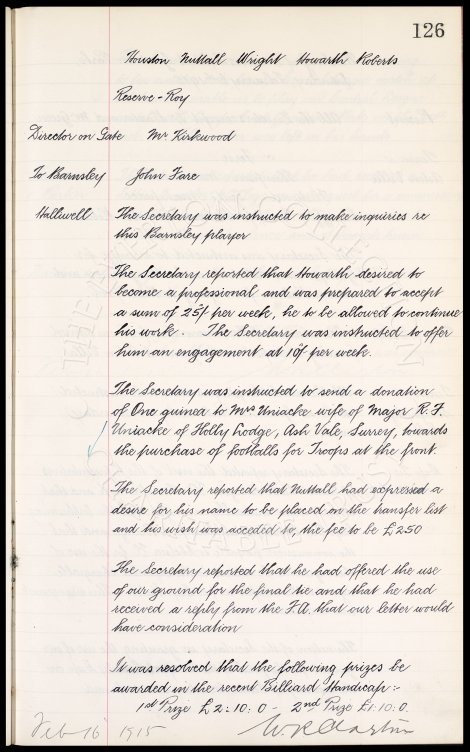 126
Houston Nuttall Wright Howarth Roberts
Reserve - Roy
Director on Gate Mr Kirkwood
To Barnsley John Fare
Halliwell The Secretary was instructed to make inquiries re
this Barnsley player
The Secretary reported that Howarth desired to
become a professional and was prepared to accept
a sum of 25/- per week, he to be allowed to continue
his work. The Secretary was instructed to offer
him an engagement at 10/- per week.
The Secretary was instructed to send a donation
of One guinea to Mrs Uniacke wife of Major R. F.
Uniacke of Holly Lodge, Ash Vale, Surrey, towards
the purchase of footballs for Troops at the front.
The Secretary reported that Nuttall had expressed a
desire for his name to be placed on the transfer list
and his wish was acceded to, the fee to be £250
The Secretary reported that he had offered the use
of our ground for the final tie and that he had
received a reply from the F.A. that our letter would
have consideration
It was resolved that the following prizes be
awarded in the recent Billiard Handicap:-
1st Prize £2:10:0 - 2nd Prize £1:10:0.
Feb 16 1915